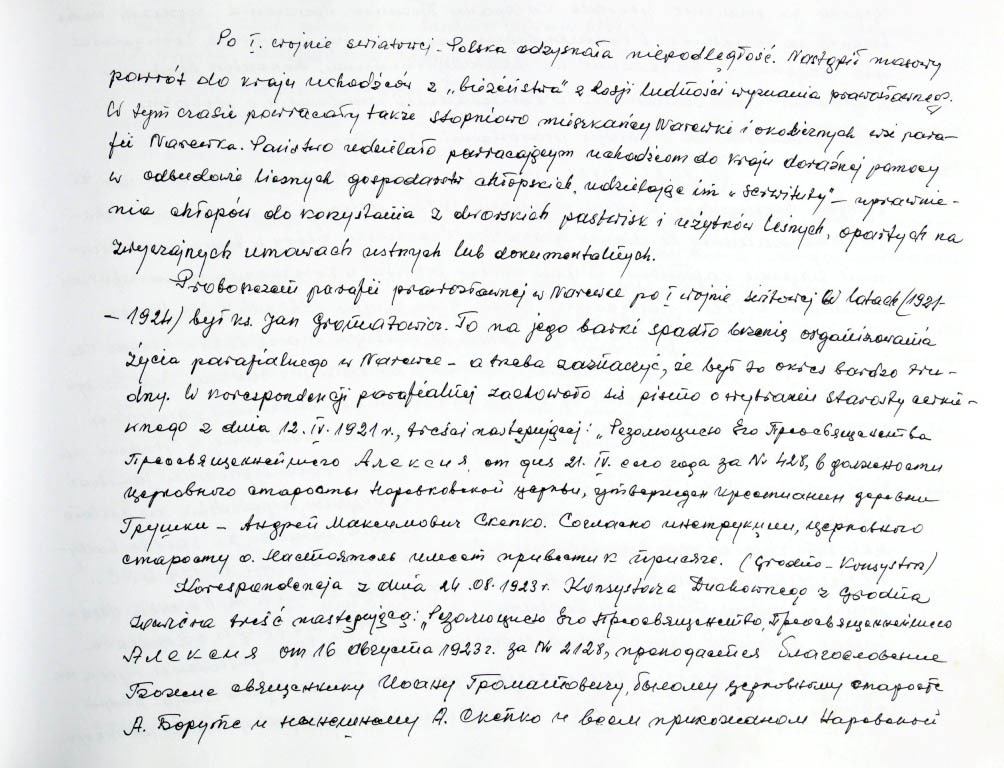 Po I. wojnie swiatowej - Polska odzyskała niepodległość. Nastąpił masowy
powrót do kraju uchodźców z „bieżeństwa” z Rosji ludności wyznania prawosławnego.
W tym czasie powracały także stopniowo mieszkańcy Narewki i okolicznych wsi para-
fii Narewka. Państwo udzielało powracającym uchodźcom do kraju doraźnej pomocy
w odbudowie licznych gospodarstw chłopskich, udzielając im „serwituty” – uprawnie-
nia chłopów do korzystania z dworskich pastwisk i użytków leśnych, opartych na
zwyczajnych umowach ustnych lub dokumentalnych.
Proboszczem parafii prawosławnej w Narewce po I wojnie świtowej w latach (1921-
– 1924) był ks. Jan Gromatowicz. To na jego barki spadło brzemię organizowania
życia parafialnego w Narewce – a trzeba zaznaczyć, że był to okres bardzo tru-
dny. W korespondencji parafialnej zachowało się pismo o wybraniu starosty cerkie-
wnego z dnia 12. IV. 1921 r., treści następującej: „Резолюциею Его Преосвященства
Преосвященнейшего Алексия, от дня 21. IV. сего года за № 428, в должности
церковного старосты Наревковской церкви, утвержден крестианин деревни
Грушки – Андрей Максимович Скепко. Согласно инструкции, церковного
старосту о. Настоятель имеет привести к присяге. (Grodno – Konsystorz)
Korespondencja z dnia 24.08.1923 r. Konsystorza Duchownego z Grodna
zawiera treść następującą: „Резолюциею Его Преосвященство, Преосвященнейшего
Алексия от 16 августа 1923 г. за № 2128, преподается благословение
Божие священнику Иоану Громатовичу, бывшому церковному старосте
А. Боруте и нынешному А. Скепко и всем прихожаном Наревской